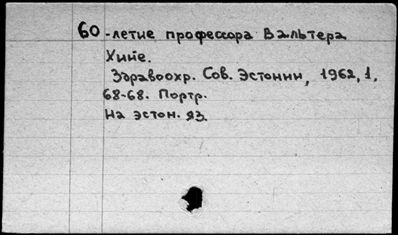 60-летие профессора Вальтера
Хийе.
Здравоохр. Сов. Эстонии, 1962, 1,
68-68. Портр.
На эстон. яз.